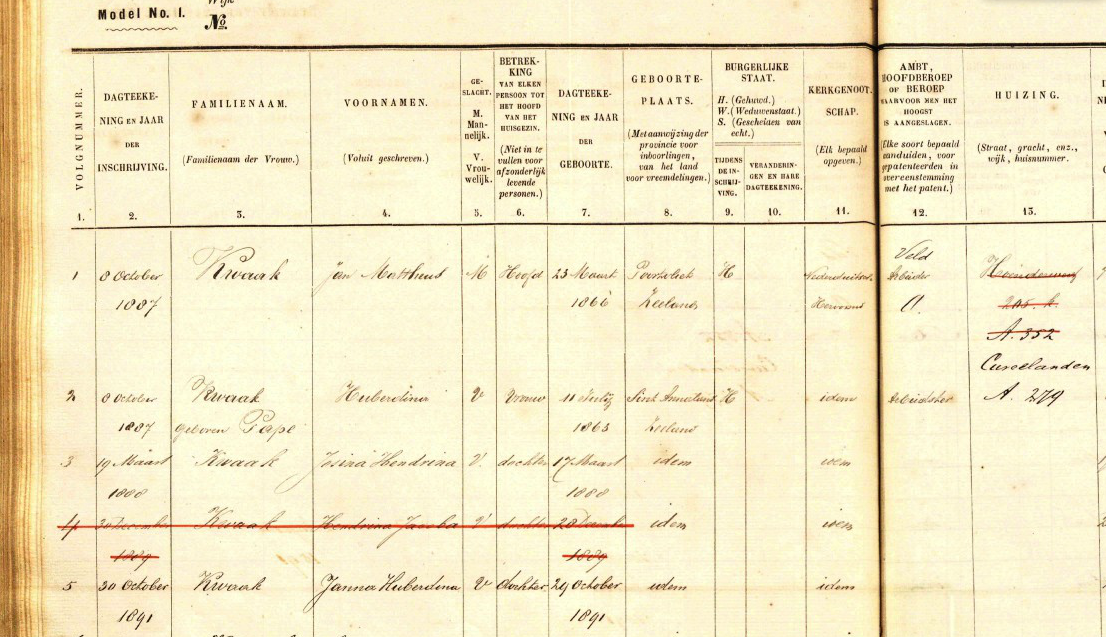 Wijk
Model No. 1.
No.
VOLGNUMMER.
DAGTEEKE-
NING EN JAAR
DER
INSCHRIJVING.
FAMILIENAAM.
(Familienaam der Vrouw.)
VOORNAMEN.
(Voluit geschreven.)
GE-
SLACHT.
M.
Man-
nelijk.
V.
Vrou-
welijk.
BETREK-
KING
VAN ELKEN
PERSOON TOT
HET HOOFD
VAN HET
HUISGEZIN.
(Niet in te
vullen voor
afzonderlijk
levende
personen.)
DAGTEEKE-
NING EN JAAR
DER
GEBOORTE.
GEBOORTE-
PLAATS.
(Met aanwijzing der
provincie voor
inboorlingen,
van het land
voor vreemdelingen.)
BURGERLIJKE
STAAT.
H. (Gehuwd.)
W. (Weduwenstaat.)
S. (Gescheiden van
echt.)
TIJDENS
DE IN-
SCHRIJ-
VING.
VERANDERIN-
GEN EN HARE
DAGTEEKENING.
KERKGENOOT-
SCHAP.
(Elk bepaald
opgeven.)
AMBT,
HOOFDBEROEP
OF BEROEP
WAARVOOR MEN HET
HOOGST
IS AANGESLAGEN.
(Elke soort bepaald
aanduiden, voor
gepatenteerden in
overeenstemming
met het patent.)
HUIZING.
(Straat, gracht, enz.,
wijk, huisnummer.
1. 2. 3. 4. 5. 6. 7. 8. 9. 10. 11. 12. 13.
Veld
1 8 October Kwaak Jan Mattheus M Hoofd 23 Maart Poortvliet H arbeider
1887 1866 Zeeland Hervormd A.
A. 352
2 8 October Kwaak Huberdina V Vrouw 11 H idem A. 279
1887 geboren Pape 1863 Zeeland
3 19 Maart Kwaak Josina Hendrina V. dochter 17 Maart idem idem
1888 1888
4 30 December Kwaak Hendrina Jacoba V dochter 28 December idem idem
1889 1889
5 30 October Kwaak Janna Huberdina V dochter 29 October idem idem
1891 1891